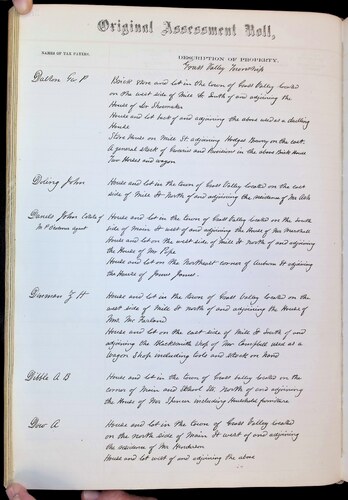 Original Assessment Roll,
NAMES OF TAX PAYERS.
DESCRIPTION OF PROPERTY.
Grass Valley Township
Dalton Geo P
Brick store and lot in the town of Grass Valley located
on the west side of Mill St South of and adjoining the
House of Shoemaker
House and lot back of and adjoining the above used as a dwelling
House
Stone House on Mill St adjoining Hodges Brewery on the east.
A general stock of Groceries and Provisions in the above Brick House
Two Horses and wagon
Doling John
House and lot in the town of Grass Valley located on the east
side of Mill St North of and adjoining the residence of Mr
Daniels John Estate of
Agent
House and lot in the town of Grass Valley located on the South
side of Main St west of and adjoining the House of Mr Marshall
House and lot on the west side of Mill St North of and adjoining
the House of Mr Pope
House and lot on the Northeast corner of Auburn St adjoining
the House of James Jones.
H
House and lot in the town of Grass Valley located on the
west side of Mill St north of and adjoining the House of
Mr McFarland
House and lot on the east side of Mill St South of and
adjoining the Blacksmith shop of Mr Campbell used as a
Wagon Shop including tools and stock on hand
Dibble A B
House and lot in the town of Grass Valley located on the
corner of Main and School Sts. North of and adjoining
the House of Mr Spencer including Household furniture
Dow A
House and lot in the town of Grass Valley located
on the north side of Main St west of and adjoining
the residence of Mr Henderson
House and lot west of and adjoining the above